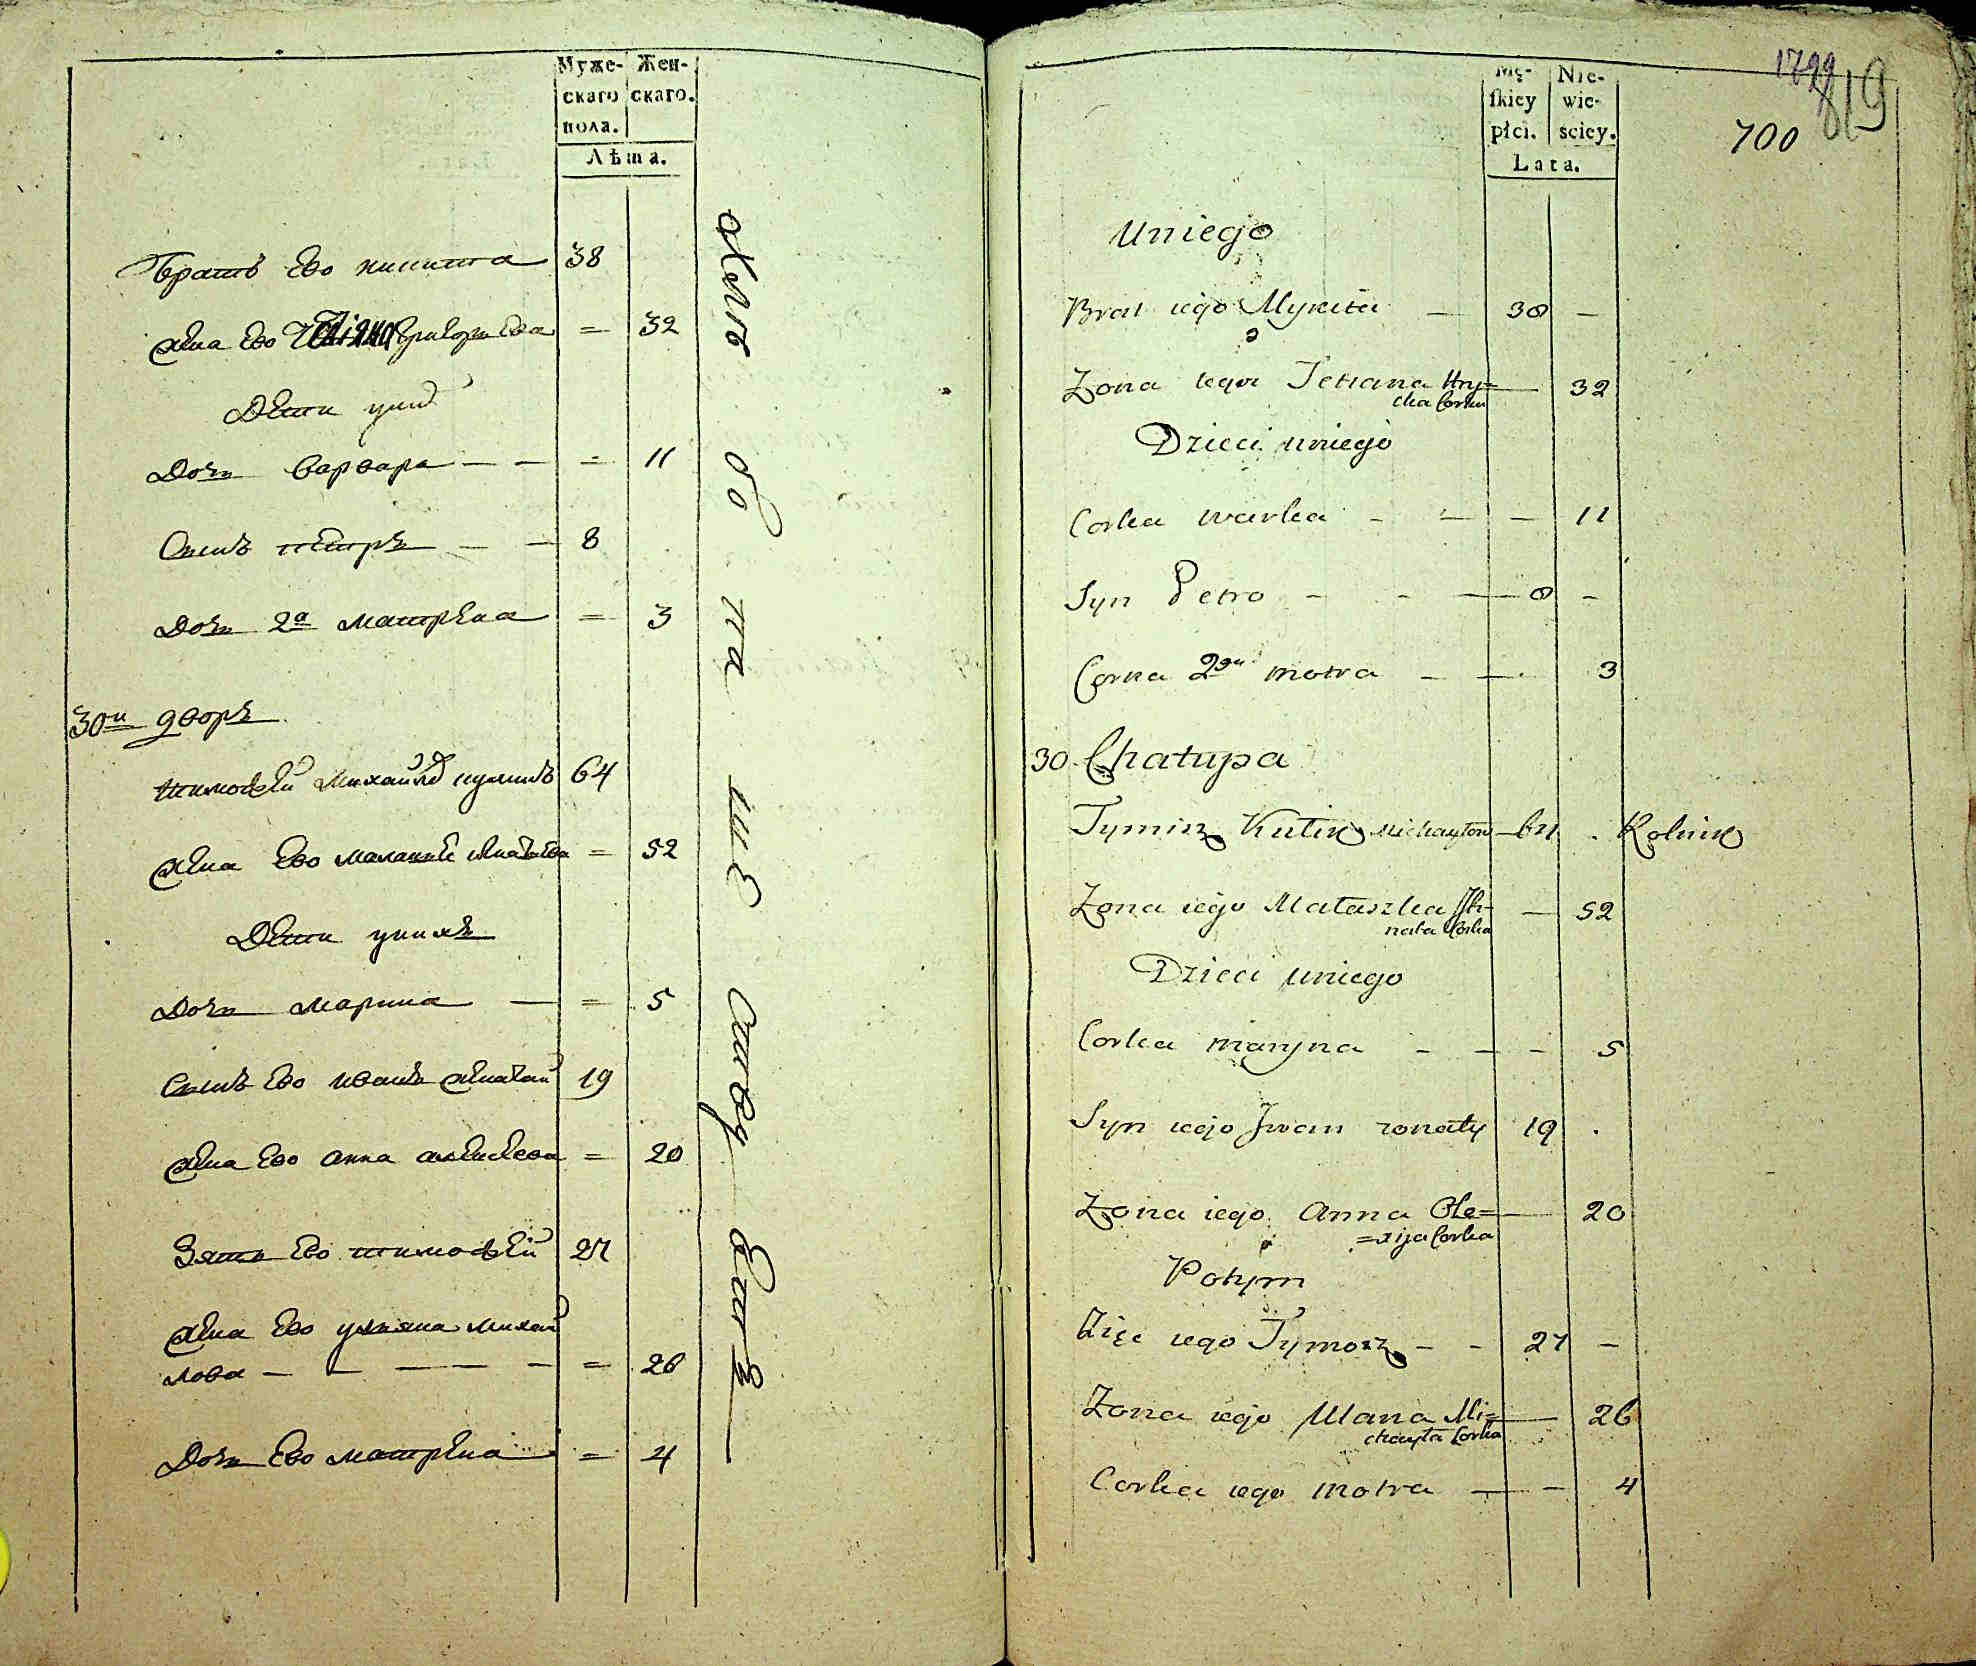 Муже- Жен-
скаго скаго.
пола.
Лѣта.
Братъ Ево никита 38
жена Ево григорьева = 32
Дети унив
Дочь варвара — — = 11
Сынъ петръ — — 8
Дочь 2а матрена = 3
30й дворъ
тимофей Михайлов куликъ 64
жена Ево маланья = 52
Дети унихъ
Дочь марина — = 5
Сынъ Ево иванъ женатый 19
жена Ево анна алексеева = 20
Зять Ево тимофей 27
жена Ево ульяна михай
лова — — — — — = 26
Дочь Ево матрена = 4
Mę- Nie-
skiey wie-
płci. sciey.
Lata.
1799
819
700
Uniego
Brat iego Mykita — 38 —
Zona iego Tetiana Hry=
cka Corka — 32
Dzieci uniego
Corka warka - — — 11
Syn Petro - - — 8 -
Corka 2ga motra — — 3
30 Chałupa
Tymisz Kulik Michayłow — 64 . Rolnik
Zona iego Małaszka Ih-
nata Corka — 52
Dzieci uniego
Corka maryna - — — 5
Syn iego Iwan zonaty 19 .
Zona iego Anna Ole=
=xija Corka — 20
Potym
Zięć iego Tymosz — - 27 —
Zona iego Ulana Mi=
chayła Corka — 26
Corka iego motra — — 4